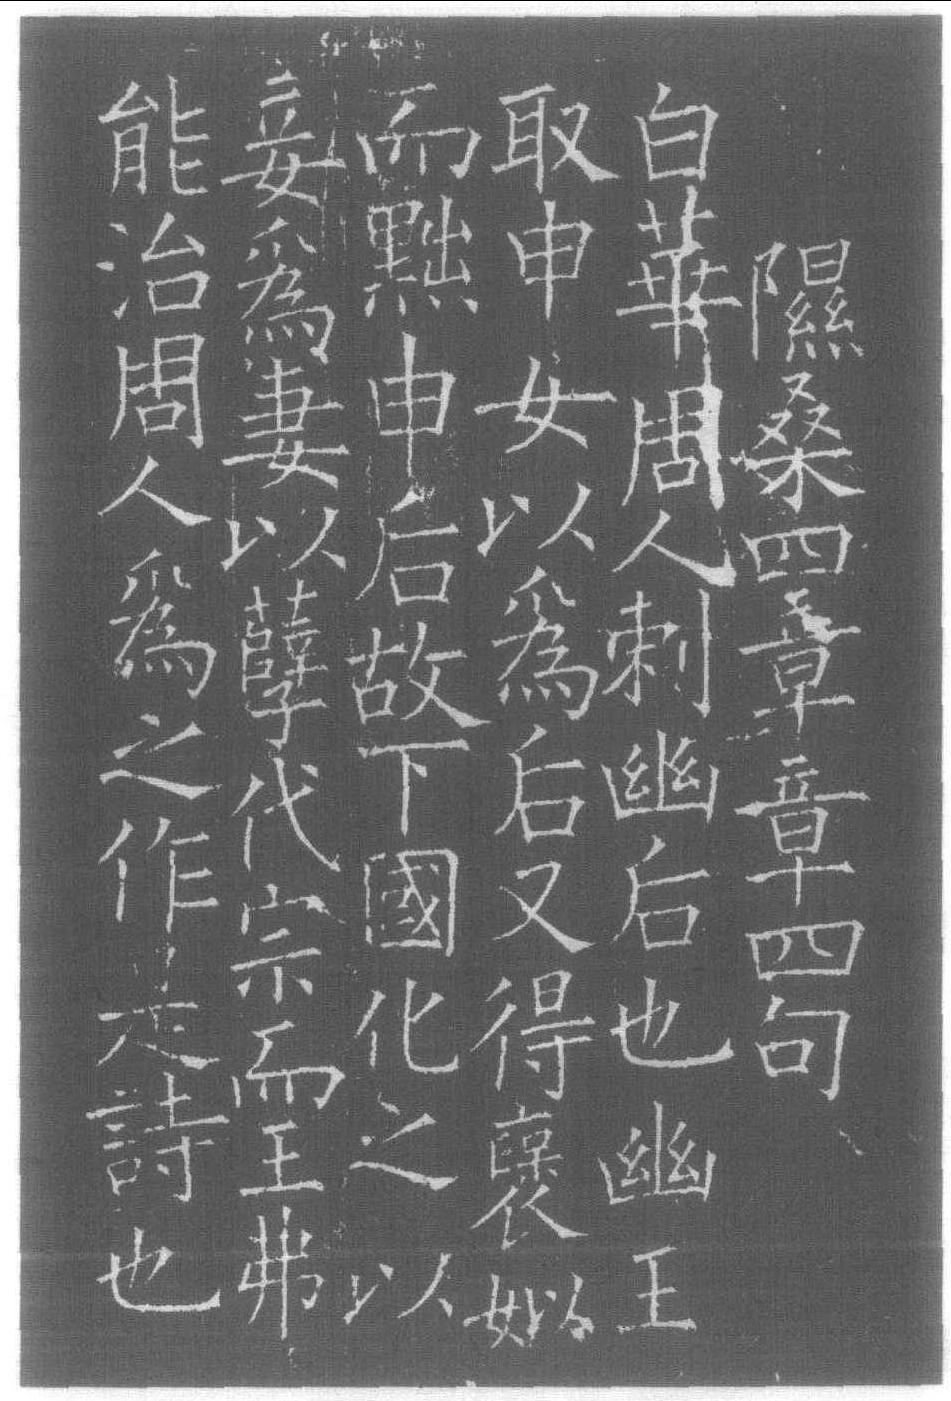 隰桑四章章四句
白華周人刺幽后也幽王
取申女以爲后又得襃姒
而黜申后故下國化之以
妾爲妻以孽代宗而王弗
能治周人爲之作是詩也